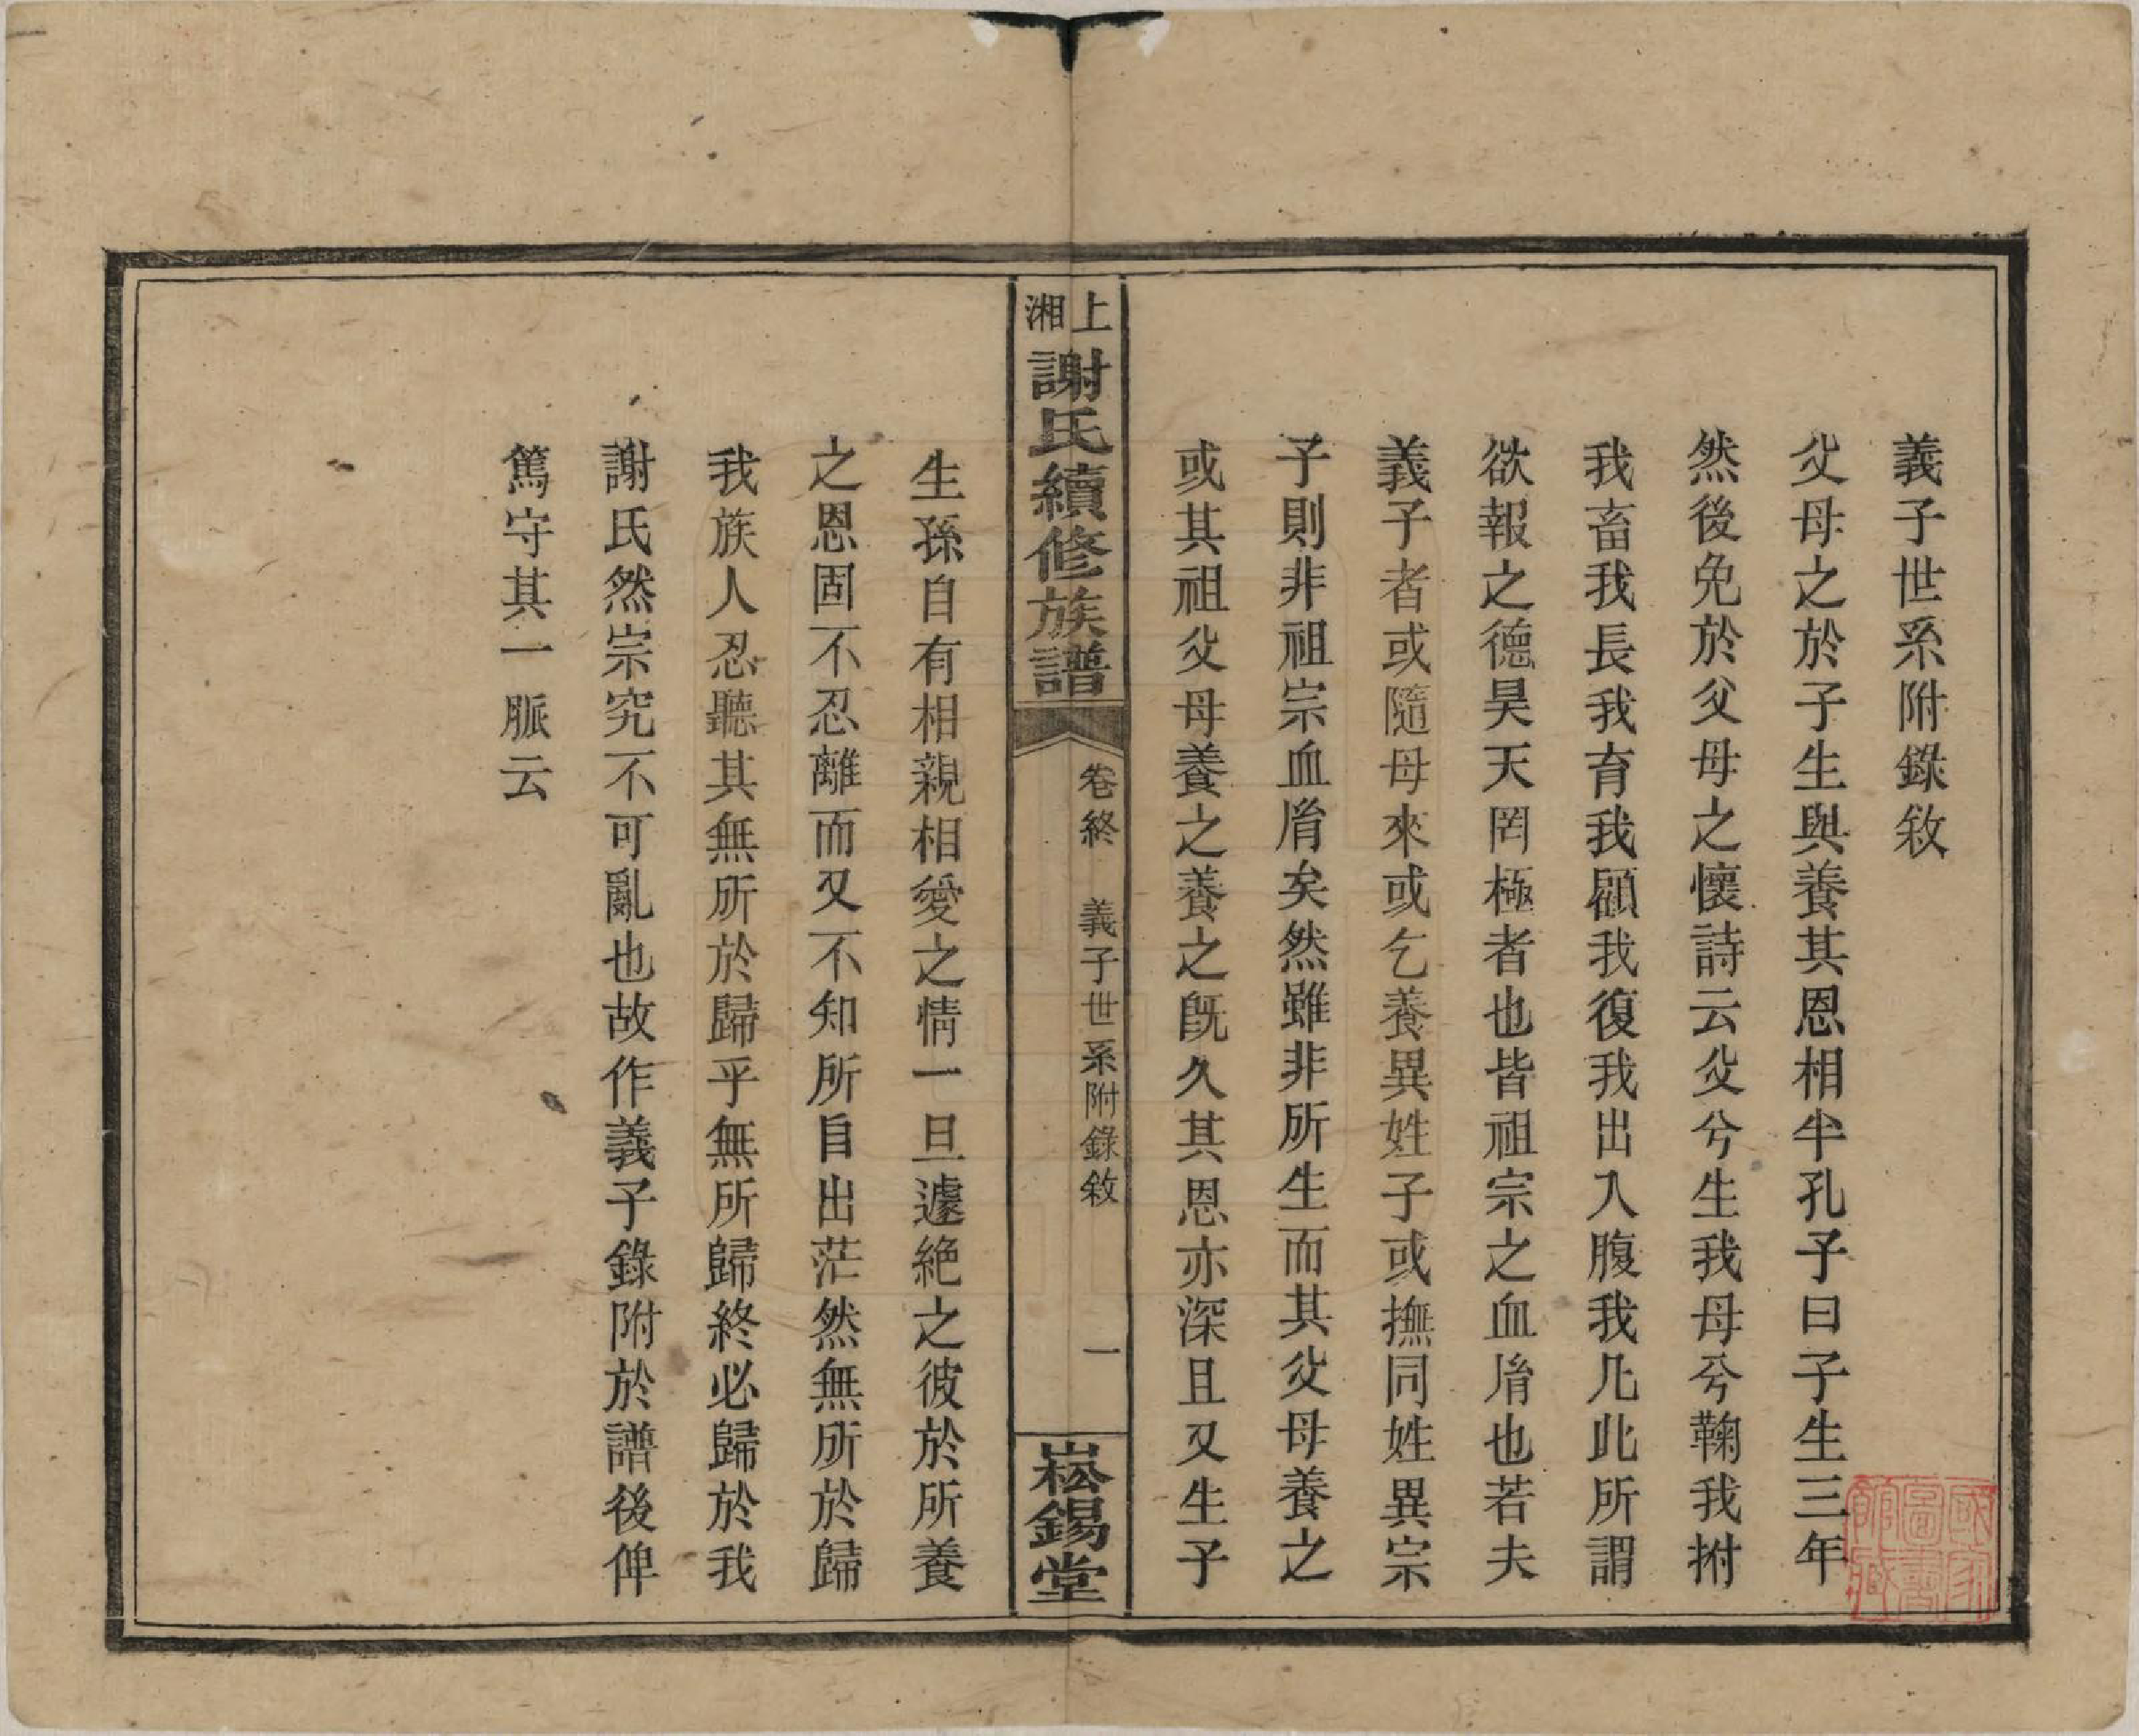 義子世系附錄敘
父母之於子生與養其恩相半孔子曰子生三年
然後免於父母之懷詩云父兮生我母兮鞠我拊
我畜我長我育我顧我復我出入腹我凡此所謂
欲報之德昊天罔極者也皆祖宗之血胤也若夫
義子者或隨母來或乞養異姓子或撫同姓異宗
子則非祖宗血胤矣然雖非所生而其父母養之
或其祖父母養之養之既久其恩亦深且又生子
上湘
謝氏續修族譜
卷終　義子世系附錄敘　一
崧錫堂
生孫自有相親相愛之情一旦遽絕之彼於所養
之恩固不忍離而又不知所自出茫然無所於歸
我族人忍聽其無所於歸乎無所歸終必歸於我
謝氏然宗究不可亂也故作義子錄附於譜後俾
篤守其一脈云
國家
圖書
館藏